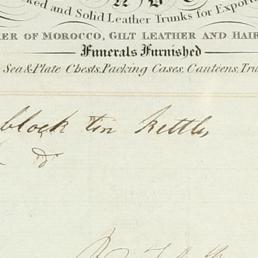 ked and Solid Leather Trunks for Export
ER OF MOROCCO, GILT LEATHER AND HAIR
Funerals Furnished
Sea & Plate Chests, Packing Cases, Canteens, Tru
block tin kettle